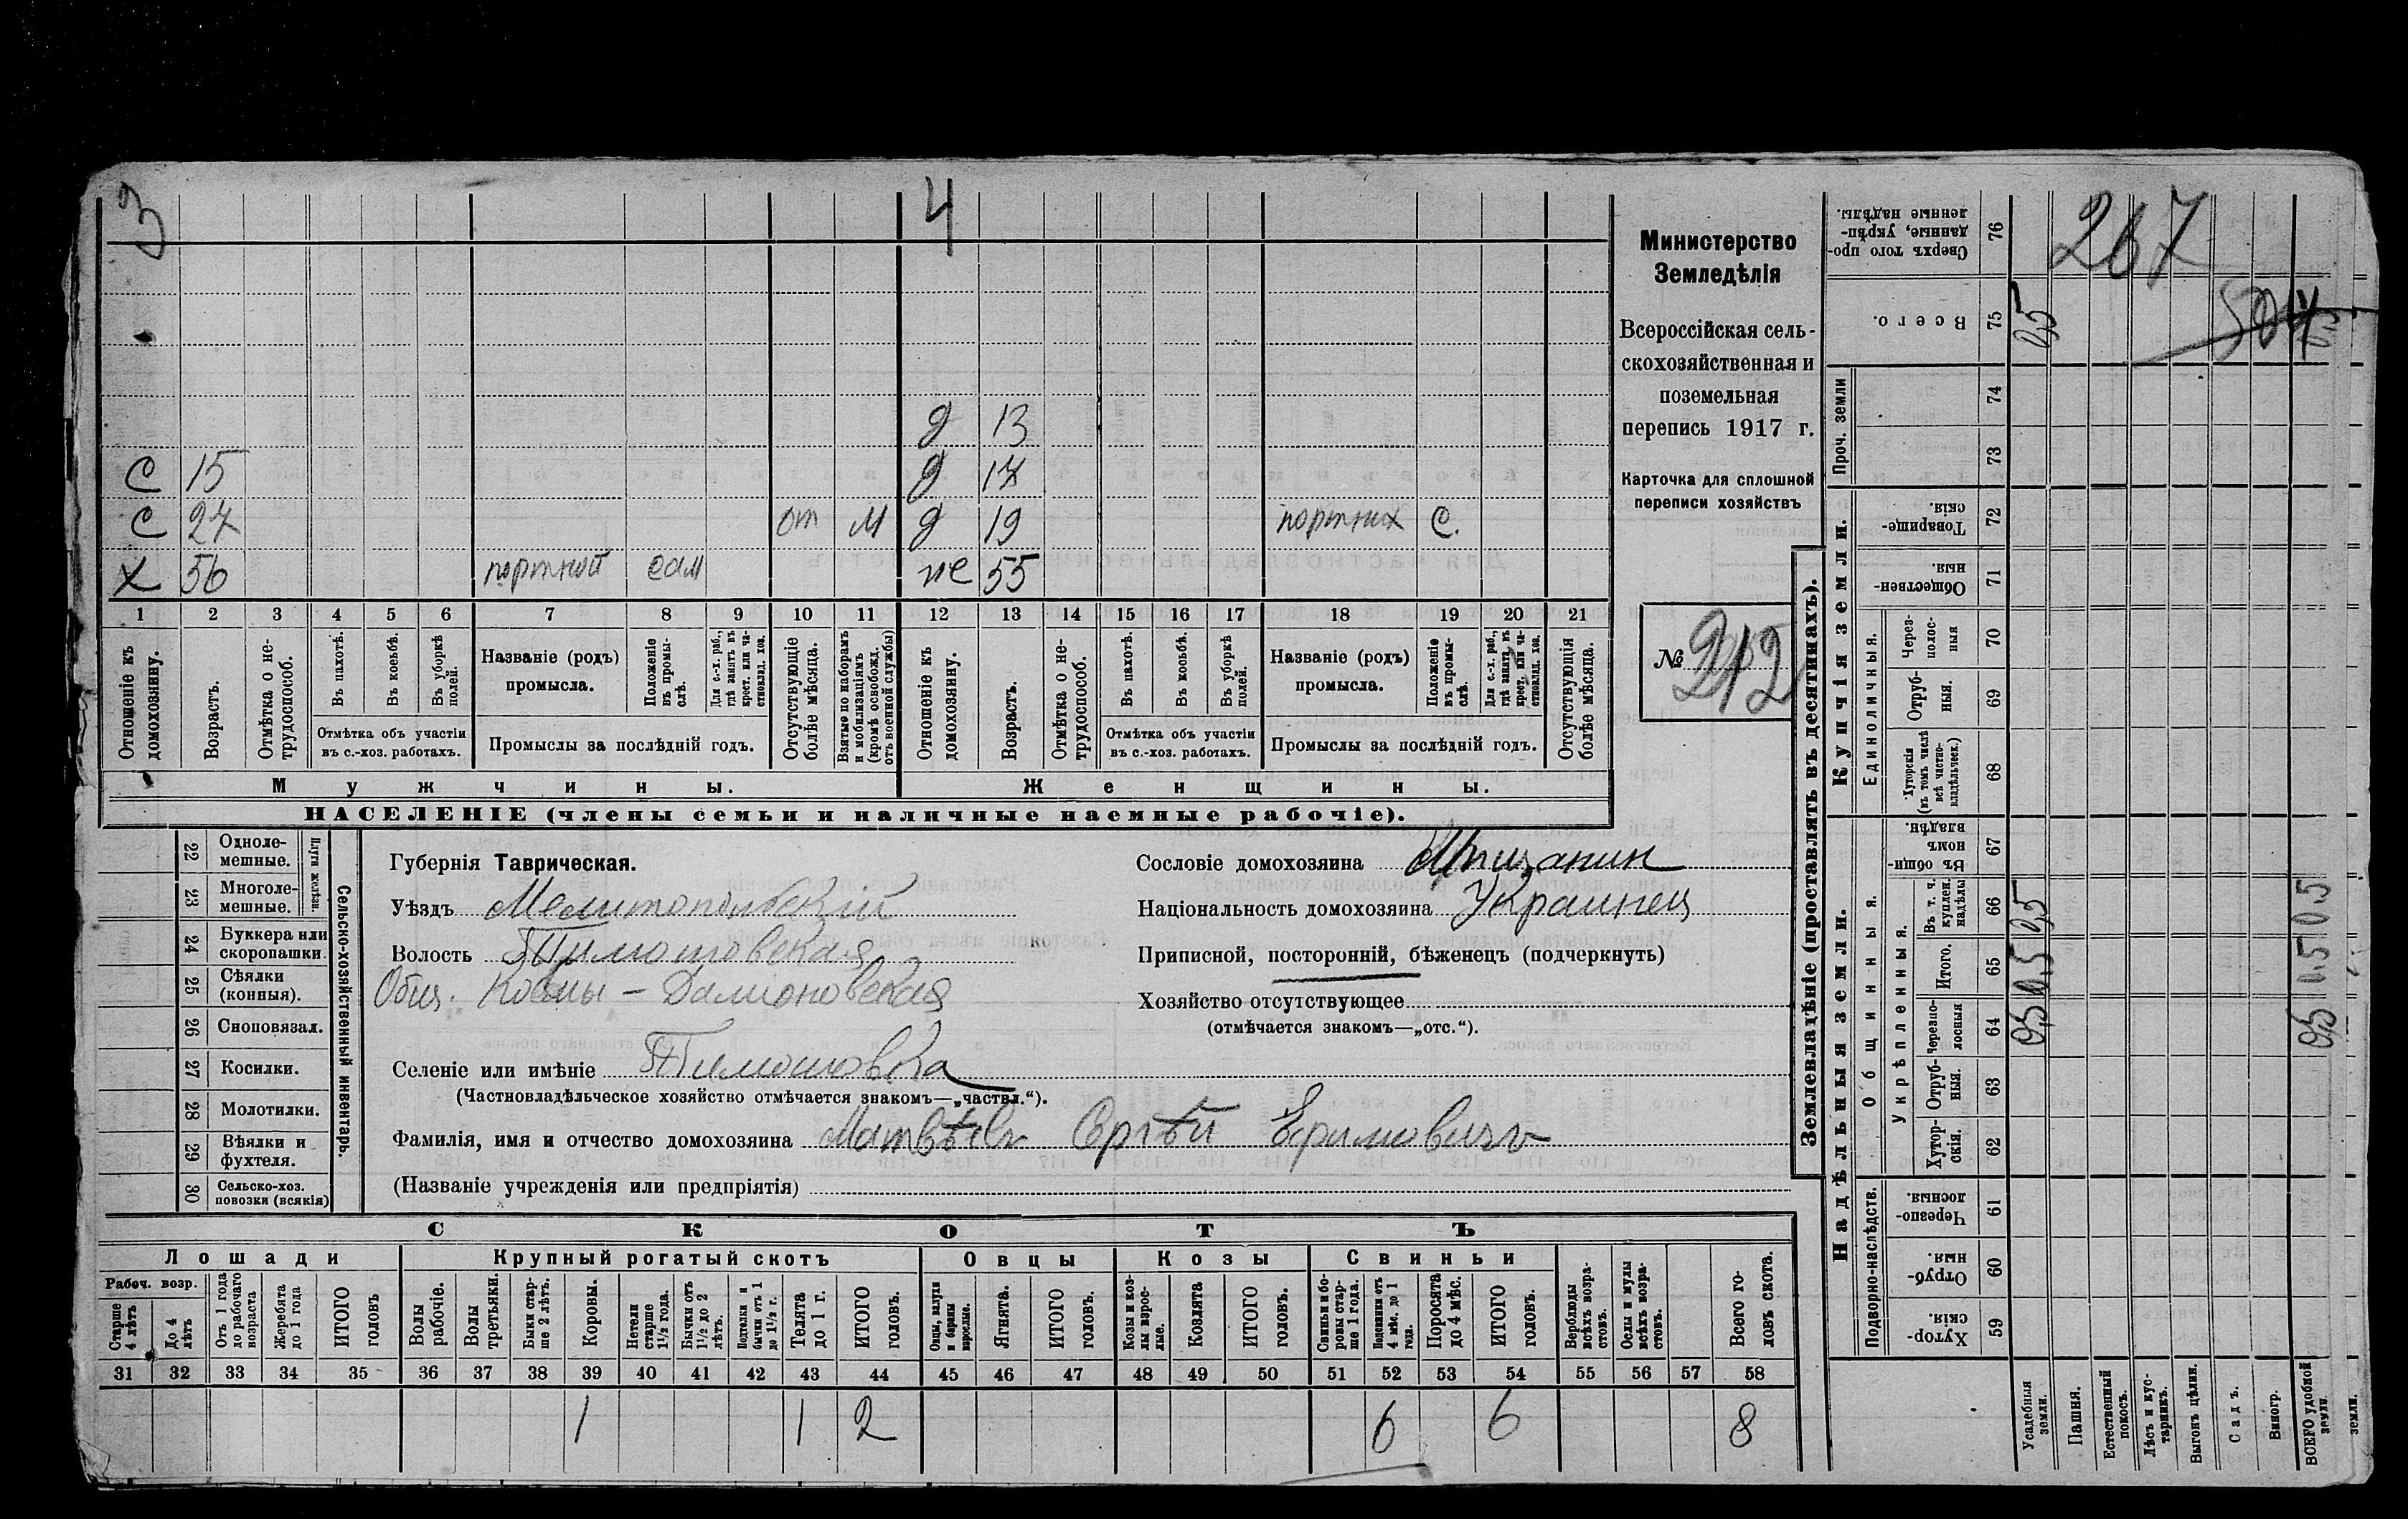 3
4
267
504
д 13
С 15
д 17
С 27 от М
д 19 портних С.
Х 56 портной сам
же 55
1 2 3 4 5 6 7 8 9 10 11 12 13 14 15 16 17 18 19 20 21
Отношеніе къ домохозяину.
Возрастъ.
Отмѣтка о не-трудоспособ.
Въ пахотѣ.
Въ косьбѣ.
Въ уборкѣ полей.
Отмѣтка объ участіи въ с.-хоз. работахъ.
Названіе (родъ) промысла.
Положеніе въ промы-слѣ.
Для с.-х. раб., гдѣ занятъ въ крест. или ча-стновлад. хоз.
Промыслы за послѣдній годъ.
Отсутствующіе болѣе мѣсяца.
Взятые по наборамъ и мобилизаціямъ (кромѣ освобожд. отъ военной службы)
Отношеніе къ домохозяину.
Возрастъ.
Отмѣтка о не-трудоспособ.
Въ пахотѣ.
Въ косьбѣ.
Въ уборкѣ полей.
Отмѣтка объ участіи въ с.-хоз. работахъ.
Названіе (родъ) промысла.
Положеніе въ промы-слѣ.
Для с.-х. раб., гдѣ занятъ въ крест. или ча-стновлад. хоз.
Промыслы за послѣдній годъ.
Отсутствующія болѣе мѣсяца.
Мужчины.
Женщины.
НАСЕЛЕНІЕ (члены семьи и наличные наемные рабочіе).
Министерство
Земледѣлія
Всероссійская сель-
скохозяйственная и
поземельная
перепись 1917 г.
Карточка для сплошной
переписи хозяйствъ
№ 212
22 Одноле-мешные.
23 Многоле-мешные.
Плуги желѣзн.
24 Буккера или скоропашки.
25 Сѣялки (конныя).
26 Сноповязал.
27 Косилки.
28 Молотилки.
29 Вѣялки и фухтеля.
30 Сельско-хоз. повозки (всякія)
Сельско-хозяйственный инвентарь.
Губернія Таврическая.
Уѣздъ Мелитопольскій
Волость Тимошовская
Общ. Козмы-Дамиановская
Селеніе или имѣніе Тимошовка
(Частновладѣльческое хозяйство отмѣчается знакомъ—„частвл.“).
Фамилія, имя и отчество домохозяина Матвѣевъ Сергѣй Ефимовичъ
(Названіе учрежденія или предпріятія)
Сословіе домохозяина Мѣщанин
Національность домохозяина Украинец
Приписной, посторонній, бѣженецъ (подчеркнуть)
Хозяйство отсутствующее
(отмѣчается знакомъ—„отс.“).
СКОТЪ
Лошади
Крупный рогатый скотъ
Овцы
Козы
Свиньи
Рабоч. возр.
Старше 4 лѣтъ
До 4 лѣтъ
Отъ 1 года до рабочаго возраста
Жеребята до 1 года
ИТОГО головъ
Волы рабочіе.
Волы третьяки.
Быки стар-ше 2 лѣтъ.
Коровы.
Нетели старше 1½ года.
Бычки отъ 1½ до 2 лѣтъ.
Подтелки и бычки отъ 1 до 1½ г.
Телята до 1 г.
ИТОГО головъ.
Овцы, валухи и бараны взрослые.
Ягнята.
ИТОГО головъ.
Козы и коз-лы взрос-лые.
Козлята
ИТОГО головъ.
Свиньи и бо-ровы стар-ше 1 года.
Подсвинки отъ 4 мѣс. до 1 года.
Поросята до 4 мѣс.
ИТОГО головъ.
Верблюды всѣхъ возра-стовъ.
Ослы и мулы всѣхъ возра-стовъ.
Всего го-ловъ скота.
31 32 33 34 35 36 37 38 39 40 41 42 43 44 45 46 47 48 49 50 51 52 53 54 55 56 57 58
1 1 2 6 6 8
Землевладѣніе (проставлять въ десятинахъ).
Купчія земли.
Надѣльныя земли.
Проч. земли
Единоличныя.
Общинныя.
Укрѣпленныя.
Подворно-наслѣдств.
Сверхъ того про-данные, укрѣп-ленные надѣлы. 76
Всего. 75 0,5
74
73
Товарище-скія. 72
Обществен-ныя. 71
Через-полос-ныя 70
Отруб-ныя. 69
Хуторскія (въ томъ числѣ всѣ частно-владѣльческ.) 68
Въ общи-номъ владѣн. 67
Въ т. ч. куплен. надѣлы 66 0,5 0,5
Итого. 65 0,5 0,5
Черезпо-лосныя 64 0,5 0,5
Отруб-ныя. 63
Хутор-скія. 62
Черезпо-лосныя. 61
Отруб-ныя. 60
Хутор-скія. 59
Усадебныя земли.
Пашня.
Естественный покосъ.
Лѣсъ и кус-тарникъ.
Выгонъ цѣлин.
Садъ.
Виногр.
ВСЕГО удобной земли.
земли.